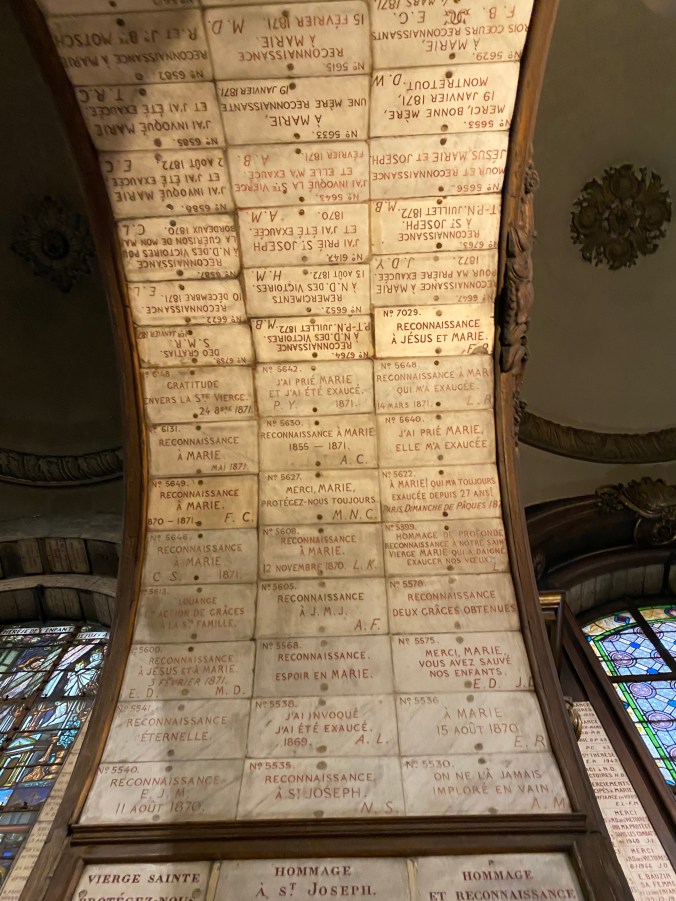 F. B.
4 MARS 1871.
TROIS CŒURS RECONNAISSANTS
À MARIE, E. C.
Nº 5629.
15 FÉVRIER 1871.
À MARIE. M. D.
RECONNAISSANCE
Nº 5615.
RECONNAISSANCE
R. ET J. Bte MOTSCH
Nº 6582.
MERCI, BONNE MÈRE,
19 JANVIER 1871,
MONTRETOUT. D. W.
Nº 5653.
À MARIE,
UNE MÈRE RECONNAISSANTE
19 JANVIER 1871
Nº 5633.
J'AI INVOQUÉ MARIE
ET J'AI ÉTÉ EXAUCÉE
T. R. C.
Nº 6585.
AMOUR ET RECONNAISSANCE
JÉSUS, MARIE ET JOSEPH
Nº 5656.
J'AI INVOQUÉ LA Ste VIERGE
ET ELLE M'A EXAUCÉE.
FÉVRIER 1871. A. B.
Nº 5643.
J'AI INVOQUÉ MARIE
ET J'AI ÉTÉ EXAUCÉE
2 AOÛT 1872. E. C.
Nº 6586.
RECONNAISSANCE
À St JOSEPH
P.T-P.N. JUILLET 1872. M. B.
Nº 6763.
J'AI PRIÉ St JOSEPH
1870. A. M.
Nº 6147.
RECONNAISSANCE
À N.D. DES VICTOIRES POUR
LA GUÉRISON DE MON MARI
BORDEAUX 1870. C. L.
Nº 6587.
POUR MA PRIÈRE EXAUCÉE
1872. J. D. Y.
Nº 6647.
REMERCIMENTS
À N.D. DES VICTOIRES.
15 AOÛT 1872. H. M.
Nº 6652.
RECONNAISSANCE
10 DÉCEMBRE 1871. E. L.
Nº 6622.
Nº 7029.
RECONNAISSANCE
À JÉSUS ET MARIE.
RECONNAISSANCE
À N.D. DES VICTOIRES
P.T-P.N. JUILLET 1872. M. B.
Nº 6764.
DEO GRATIAS.
S. M. R.
JANVIER 1871
Nº 6759.
GRATITUDE
ENVERS LA Ste VIERGE.
24 8bre 1871.
Nº 5642.
J'AI PRIÉ MARIE
ET J'AI ÉTÉ EXAUCÉ.
P. Y. 1871.
Nº 5648
RECONNAISSANCE À MARIE
QUI M'A EXAUCÉE.
14 MARS 1871. L. R.
Nº 6131.
RECONNAISSANCE
À MARIE.
MAI 1871.
Nº 5630.
RECONNAISSANCE À MARIE
1855 — 1871.
A. C.
Nº 5640.
J'AI PRIÉ MARIE,
ELLE M'A EXAUCÉE
Nº 5649.
RECONNAISSANCE
À MARIE.
1870 — 1871. F. C.
Nº 5627.
MERCI, MARIE,
PROTÉGEZ-NOUS TOUJOURS.
M. N. C.
Nº 5622.
À MARIE! QUI M'A TOUJOURS
EXAUCÉE DEPUIS 27 ANS!
PARIS, DIMANCHE DE PÂQUES
RECONNAISSANCE
À MARIE.
C S. 1871.
Nº 5608.
RECONNAISSANCE
À MARIE.
12 NOVEMBRE 1870. L. K.
Nº 5589.
HOMMAGE DE PROFONDE
RECONNAISSANCE À NOTRE SAINTE
VIERGE MARIE QUI A DAIGNÉ
EXAUCER NOS VŒUX.
LOUANGE
ET ACTION DE GRÂCES
À LA Ste FAMILLE.
Nº 5605.
RECONNAISSANCE
À J. M. J.
A. F.
Nº 5578
RECONNAISSANCE
DEUX GRÂCES OBTENUES
Nº 5600.
RECONNAISSANCE
À JÉSUS ET À MARIE.
5 FÉVRIER 1871.
E. D. M. D.
Nº 5568.
RECONNAISSANCE.
ESPOIR EN MARIE.
Nº 5575.
MERCI, MARIE,
VOUS AVEZ SAUVÉ
NOS ENFANTS.
E. D.
Nº 5541.
RECONNAISSANCE
ÉTERNELLE.
Nº 5538.
J'AI INVOQUÉ
J'AI ÉTÉ EXAUCÉ.
1869. A. L.
Nº 5536.
À MARIE
15 AOÛT 1870.
E. R.
Nº 5540.
RECONNAISSANCE
E. J. M.
11 AOÛT 1870.
Nº 5535.
RECONNAISSANCE
À St JOSEPH.
N. S.
Nº 5530.
ON NE L'A JAMAIS
IMPLORÉ EN VAIN.
A. M.
VIERGE SAINTE
PROTÉGEZ-NOUS
HOMMAGE
À St JOSEPH.
HOMMAGE
ET RECONNAISSANCE